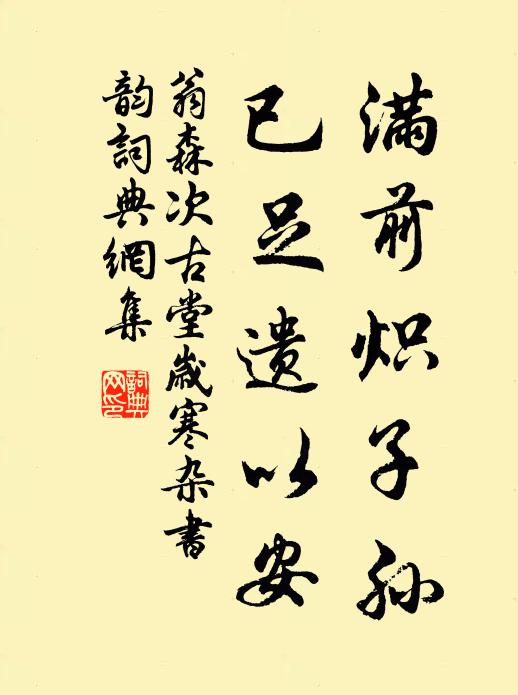 满前炽子孙
已足遗以安
翁森次古堂岁寒杂书
韵词典網集
詞典网印